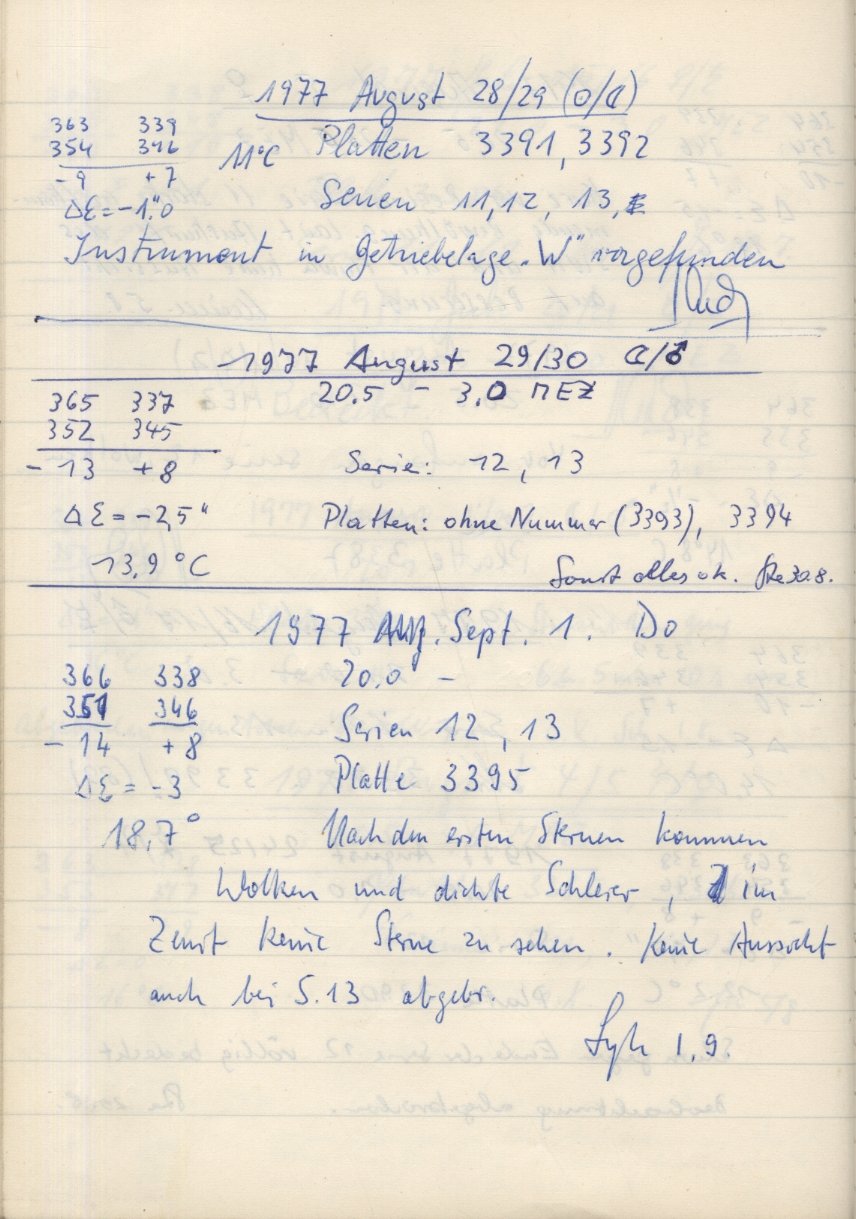 1977 August 28/29 (☉/☾)
363 339
354 346 11°C Platten 3391, 3392
-9 +7
Δε=-1".0 Serien 11, 12, 13,
Instrument in Getriebelage "W" vorgefunden
1977 August 29/30 ☾/♂
365 337 20.5 - 3.0 MEZ
352 345
-13 +8 Serie: 12, 13
Δε=-2,5" Platten: ohne Nummer (3393), 3394
13,9 °C Sonst alles ok. 30.8.
1977 Sept. 1. Do
366 338 20.0 -
351 346 Serien 12, 13
-14 +8
Δε= -3 Platte 3395
18,7° Nach den ersten Sternen kommen
Wolken und dichte Schleier, im
Zenit keine Sterne zu sehen. Keine Aussicht
auch bei S.13 abgebr.
1.9.